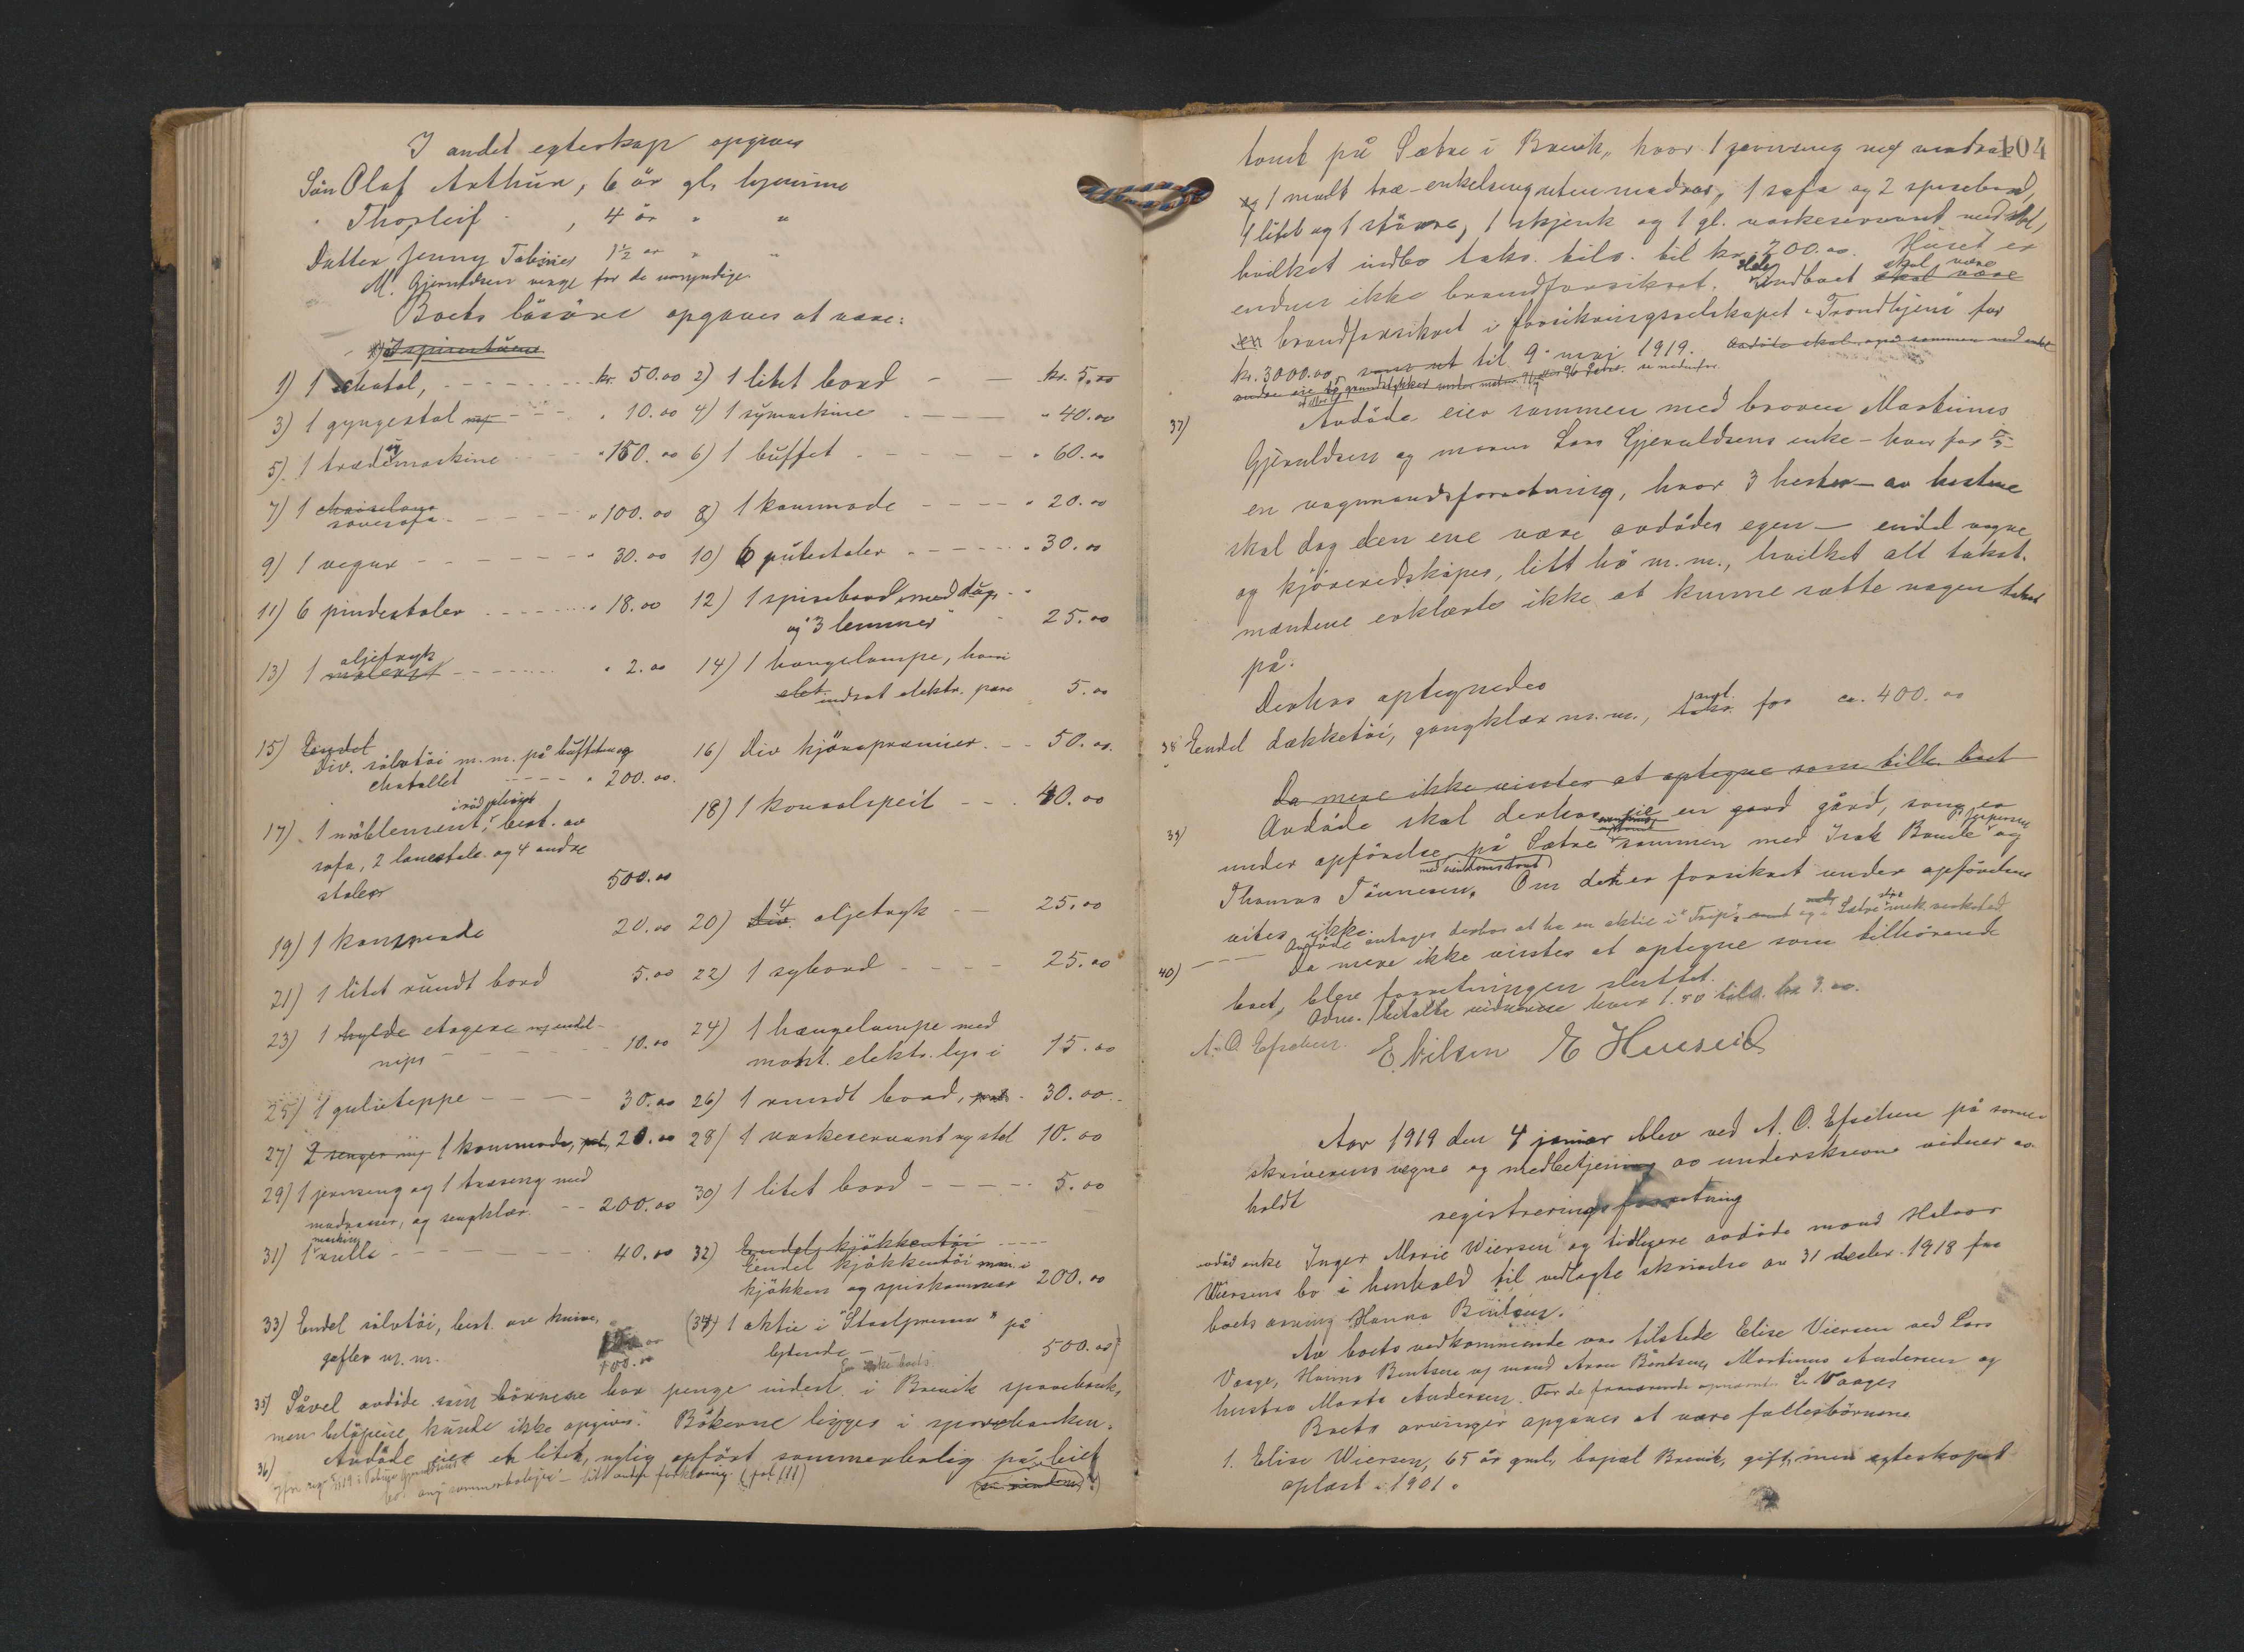 I andet egteskap opgives
Søn Olaf Arthur, 6 år gl. hjemme
" Thorleif " , 4 år " "
Datter Jenny Tobine 1½ år " "
M. Gjeruldsen verge for de umyndige.
Boets løsøre opgaves at være:
I spisestuen
1) 1 chatol, kr. 50.00 2) 1 litet bord kr. 5.00
3) 1 gyngestol " 10.00 4) 1 symaskine " 40.00
5) 1 trædesymaskine " 150.00 6) 1 buffet " 60.00
7) 1 chaiselong sovesofa " 100.00 8) 1 kommode " 20.00
9) 1 regul " 30.00 10) 6 putestoler " 30.00
11) 6 pindestoler " 18.00 12) 1 spisebord med duge
og 3 lemmer 25.00
13) 1 oljetryk " 2.00 14) 1 hængelampe, hvori
elet. indsat elektr. pære 5.00
15) Endel
Div. sølvtøi m.m. på buffeten og 16) Div kjørapræmier 50.00
chatollet " 200.00
i rød plusch
17) 1 møblement, best. av 18) 1 konsolspeil 40.00
sofa, 2 lænestole og 4 andre
stoler 500.00
19) 1 kommode 20.00 20) Div. 4 oljetryk 25.00
21) 1 litet rundt bord 5.00 22) 1 sybord 25.00
23) 1 hylde etagere og endel 24) 1 hængelampe med
nips 10.00 mont. elektr. lys i 15.00
25) 1 gulvteppe 30.00 26) 1 rundt bord, 30.00
27) 2 senger og 1 kommode, 20.00 28) 1 vaskeservant og stel 10.00
29) 1 jernseng og 1 træseng med
madrasser, og sengklær 200.00 30) 1 litet bord 5.00
31) 1 rulle 40.00 32) Endel kjøkkentøi
Endel kjøkkentøi m.m. i
kjøkken og spiskammer 200.00
33) Endel sølvtøi, best. av knive, (34) 1 aktie i "Staalpressen" på
gafler m.m. 100.00 lydende 500.00)
35) Såvel avdøde som børnene har penge indest. i Brevik sparebank,
men beløpene kunde ikke opgives. Bøkerne ligger i sparebanken.
36) Avdøde eier et litet, nylig opført sommerbolig på leiet
(se videre)
tomt på Sætre i Brevik, hvor 1 jernseng med madras 104
og 1 malt træ-enkelseng uten madras, 1 sofa og 2 spisebord,
1 litet og 1 større, 1 skjenk og 1 gl. vaskeservant med stel,
hvilket indbo taks. tils. til kr. 200.00. Huset er
endnu ikke brandforsikret. Hele Indboet skal være
brandforsikret i forsikringsselskapet "Trondhjem" for
kr. 3000.00 til 9. maj 1919. Avdøde skal også sammen med enke
37) Avdøde eier sammen med broren Martinius
Gjeruldsen og moren Lars Gjeruldsens enke – hver for ⅓ –
en vognmandsforretning, hvor 3 hester – av hestene
skal dog den ene være avdødes egen – endel vogne
og kjøreredskaper, litt hø m.m., hvilket alt takst-
mændene erklærte ikke at kunne sætte nogen takst
på.
Derhos optegnedes
38 Endel dækketøi, gangklær m.m., taks. for ca. 400.00
Da mere ikke vistes at optegne som tilh. boet
39) Avdøde skal derhos eie en gård, som er
under opførelse på Sætre sammen med Isak Bamle og
Thomas Tønnesen. Om det er forsikret under opførelsen
vites ikke.
Avdøde antages derhos at ha en aktie i "Trip", og i Sætre mek. verksted
40) Da mere ikke vistes at optegne som tilhørende
boet, blev forretningen sluttet.
Adm. betalte vidnerne hver 1.50 tils. kr 3.00.
E. Nilsen
Aar 1919 den 4 januar blev ved A. O. Efsetun på soren-
skriverens vegne og med betjening av underskrevne vidner av-
holdt registreringsforretning
avdød enke Inger Marie Wiersen og tidligere avdøde mand Halvor
Wiersens bo i henhold til vedlagte skrivelse av 31 decbr. 1918 fra
boets arving Hanna Bentsen.
Av boets vedkommende var tilstede Elise Wiersen ved Lars
Vaage, Hanna Bentsen og mand Aron Bentsen, Martinus Andersen og
hustru Marta Andersen. For de fraværende opnævnt L. Vaage
Boets arvinger opgaves at være fællesbørnene
1. Elise Wiersen, 65 år gml., bopæl Brevik, gift, men egteskapet
opløst i 1901.